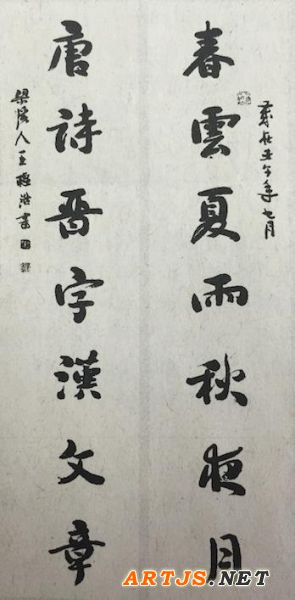 歲在壬午年七月
春雲夏雨秋夜月
唐詩晉字漢文章
梁溪人王浩書
ARTJS.NET